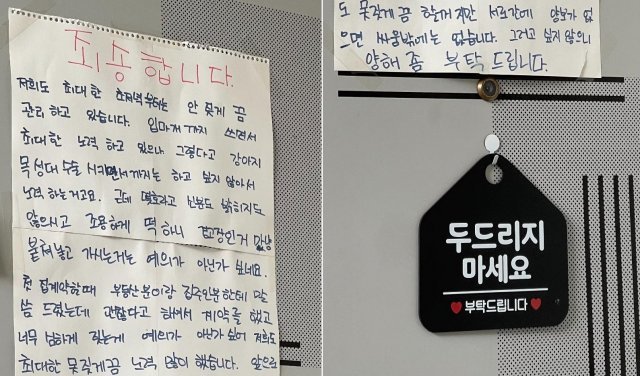 죄송합니다.
저희도 최대한 초저녁 부터는 안 짖게 끔
관리 하고 있습니다. 입마개 까지 쓰면서
최대한 노력 하고 있으나 그렇다고 강아지
목성대 수술 시키면서 까지는 하고 싶지 않아서
노력 하는거고요. 근데 몇호라고 신분도 밝히지도
않으시고 조용하게 떡 하니 경고장인거 마냥
붙여놓고 가시는거는 예의가 아닌가 싶네요.
첫 집계약할때 부동산분이랑 집주인분한테 말
씀 드렸는데 괜찮다고 하셔서 계약을 했고
너무 심하게 짖는게 예의가 아닌가 싶어 저희도
최대한 못짖게끔 노력 많이 했습니다. 앞으로
도 못짖게 끔 하는게지만 서로간에 양보가 없
으면 싸움밖에는 없습니다. 그러고 싶지 않으니
양해 좀 부탁 드립니다.
두드리지
마세요
부탁드립니다